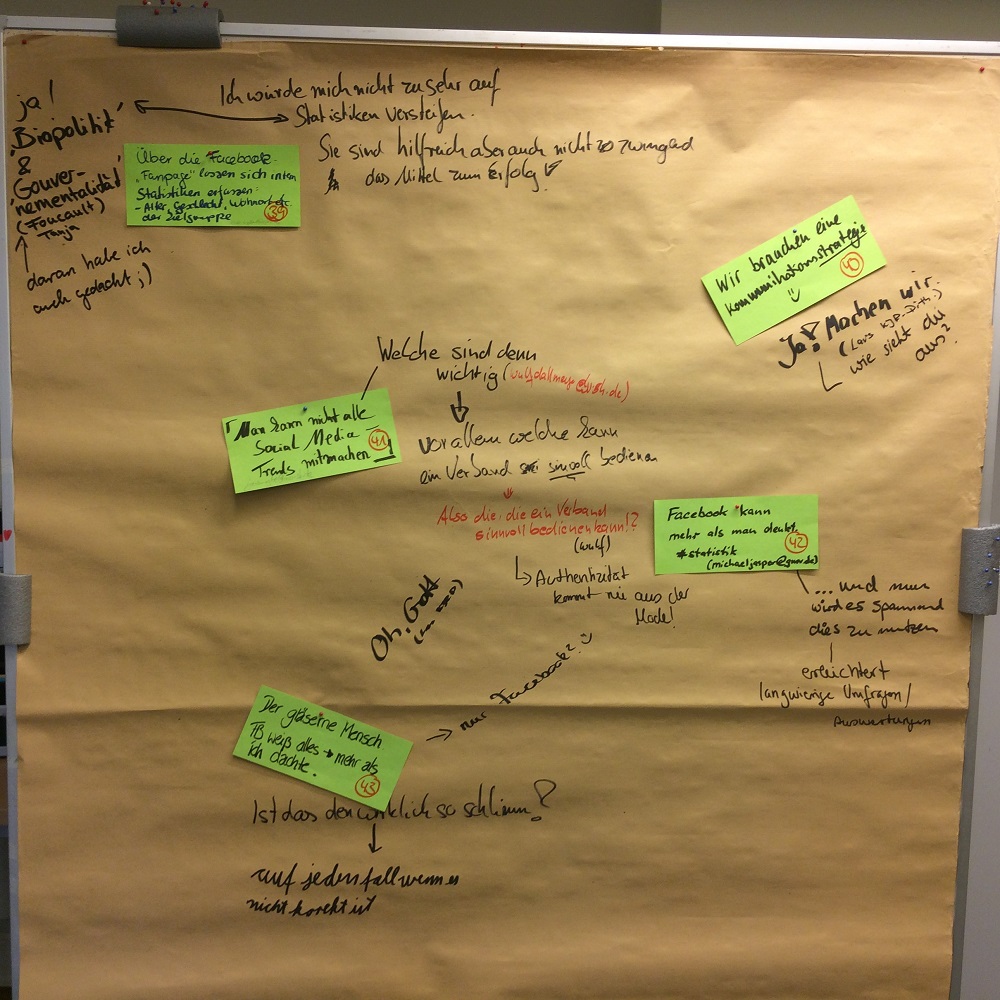 ja!
'Biopolitik'
&
'Gouver-
nementalität'
(Foucault)
Tanja
daran habe ich
auch gedacht ;)
Ich würde mich nicht zu sehr auf
Statistiken versteifen.
Sie sind hilfreich aber auch nicht zwingend
das Mittel zum Erfolg!
Über die Facebook-
"Fanpage" lassen sich
Statistiken erfassen:
- Alter, Geschlecht, Wohnort etc.
der Zielgruppe
39
Wir brauchen eine
Kommunikationsstrategie
40
Ja! Machen wir.
wie sieht du
aus?
Welche sind denn
wichtig
Man kann nicht alle
Social Media -
Trends mitmachen
41
Vor allem welche kann
ein Verband sinvoll bedienen
Also die, die ein Verband
sinnvoll bedienen kann!?
(wulf)
Authentizität
kommt nie aus der
Mode!
Facebook kann
mehr als man denkt.
#statistik
42
... und nun
wird es spannend
dies zu nutzen
erleichtert
langwierige Umfragen/
Auswertungen
Oh, Gott
Der gläserne Mensch
FB weiß alles → mehr als
ich dachte.
43
→ nur Facebook?
Ist das den wirklich so schlimm?
auf jeden fall wenn es
nicht korekt ist